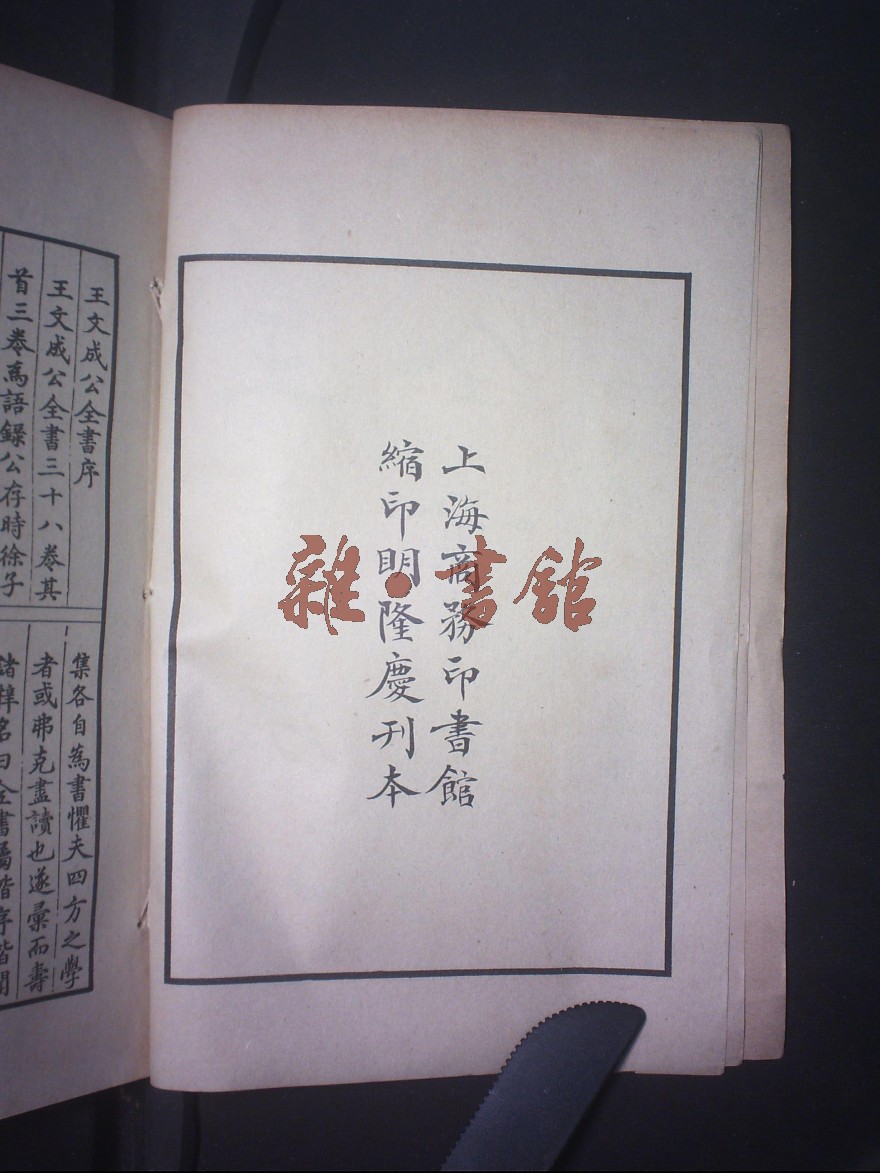 上海商務印書館
縮印明隆慶刊本
雜·書館
王文成公全書序
王文成公全書三十八卷其
首三卷爲語錄公存時徐子
集各自爲書懼夫四方之學
者或弗克盡讀也遂彙而壽
諸梓名曰全書屬階序階聞